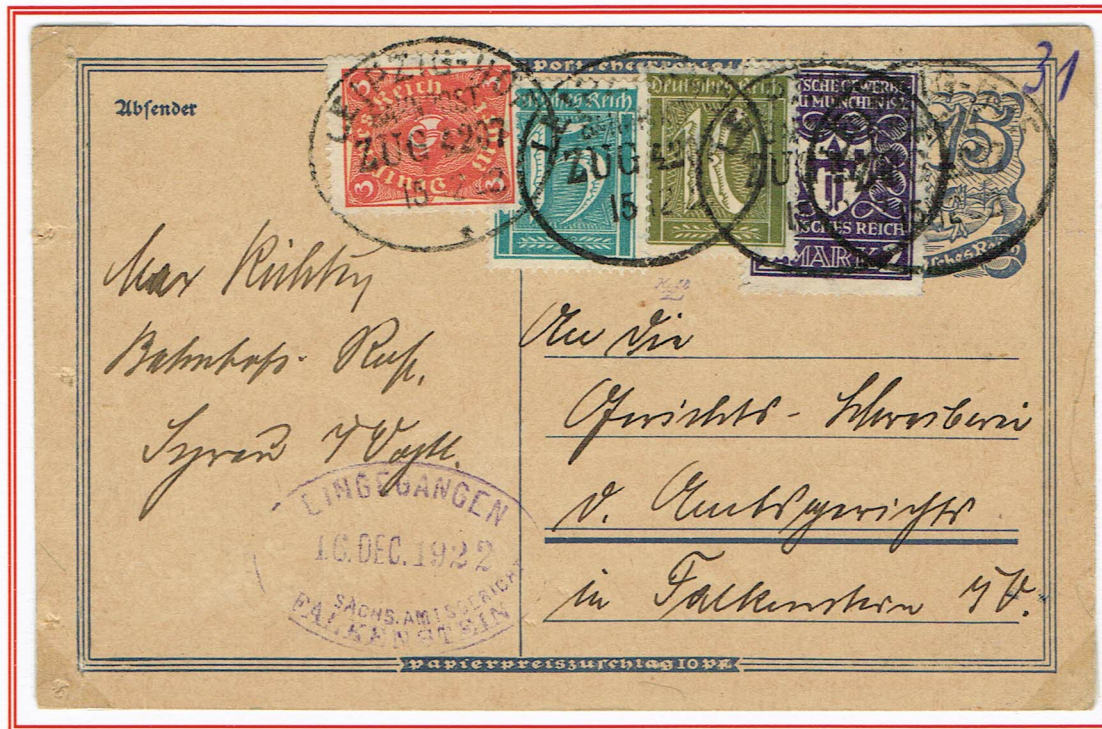 31
Absender
LEIPZIG-HOF
ZUG 4207
15
3
Deutsches Reich
ZUG 42
15 12
Deutsches Reich
10
ZUG
DEUTSCHE GEWERBE
MÜNCHEN 192
DEUTSCHES REICH
MARK 2
75
Deutsches Reich
Max Richter
Bahnhofs-
Syrau i/Vogtl.
An die
Gerichts-Schreiberei
d. Amtsgerichts
in Falkenstein i/V.
EINGEGANGEN
16. DEC. 1922
SÄCHS. AMTSGERICHT
FALKENSTEIN
Papierpreiszuschlag 10 Pf.